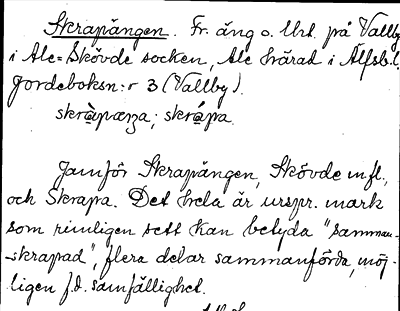 Skrapängen. Fr. äng o. Urt. på Vallby
i Ale=Skövde socken, Ale härad i Älfsb. l.
Jordeboksn:r 3 (Vallby).
skràpæŋa; skrápa.
Jämför Skrapängen, Skövde infl.,
och Skrapa. Det hela är urspr. mark
som rimligen sett kan betyda "samman-
-skrapad", flera delar sammanförda, möj-
ligen f.d. samfällighet.